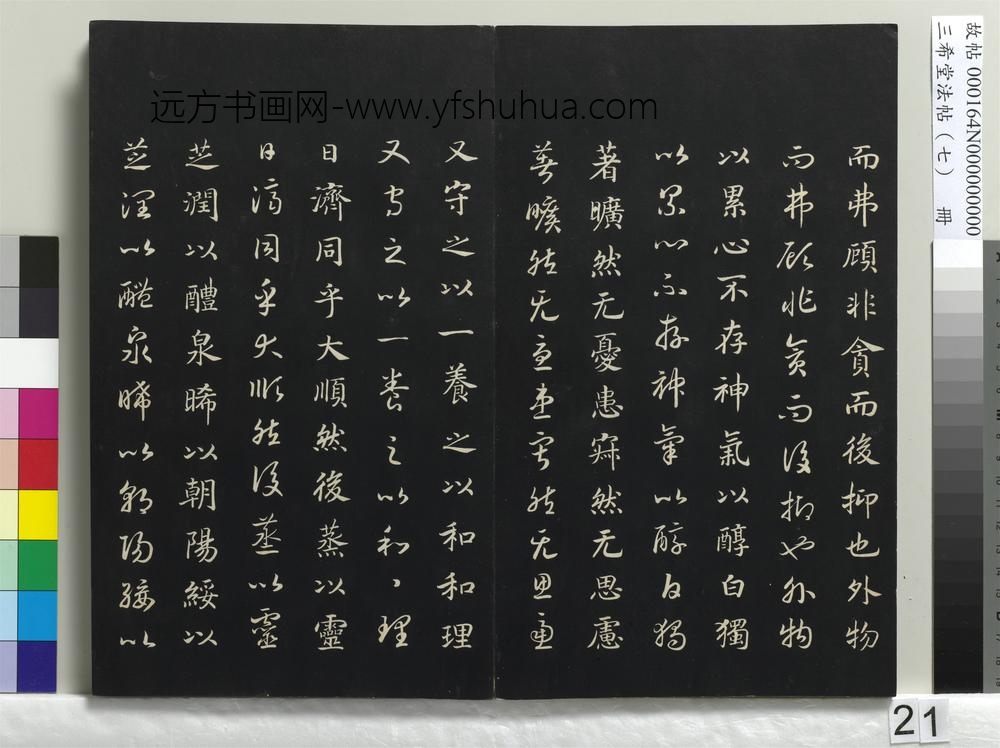 远方书画网-www.yfshuhua.com
而弗顧非貪而後抑也外物
而弗顧非貪而後抑也外物
以累心不存神氣以醇白獨
以累心不存神氣以醇白獨
著曠然无憂患寂然无思慮
著曠然无憂患寂然无思慮
又守之以一養之以和和理
又守之以一養之以和〻理
日濟同乎大順然後蒸以靈
日濟同乎大順然後蒸以靈
芝潤以醴泉晞以朝陽綏以
芝潤以醴泉晞以朝陽綏以
故帖 000164N000000000
三希堂法帖(七) 冊
21